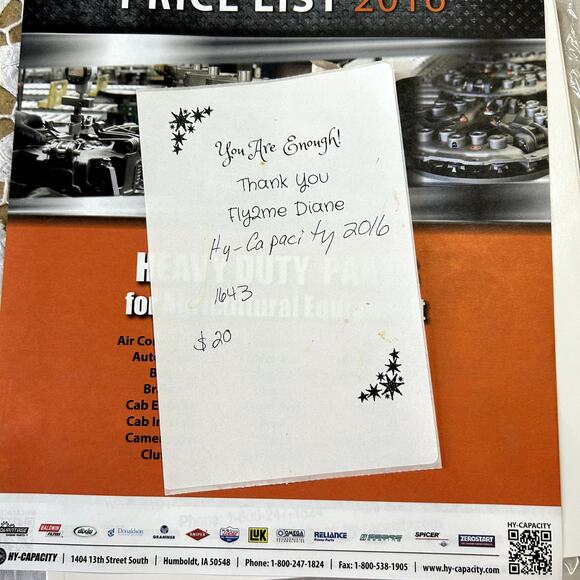 PRICE LIST 2016
You Are Enough!
Thank You
Fly2me Diane
Hy-Capacity 2016
1643
$20
HEAVY DUTY PA
for Agricultural Equi t
Air Co
Auto
B
Br
Cab E
Cab In
Came
Clu
BALDWIN FILTERS
dixie
Donaldson
GRAMMER
KNIPEX
LUCAS
LUK
OMEGA
RELIANCE
SPICER
ZEROSTART
HY-CAPACITY
HY-CAPACITY | 1404 13th Street South | Humboldt, IA 50548 | Phone: 1-800-247-1824 | Fax: 1-800-538-1905 | www.hy-capacity.com